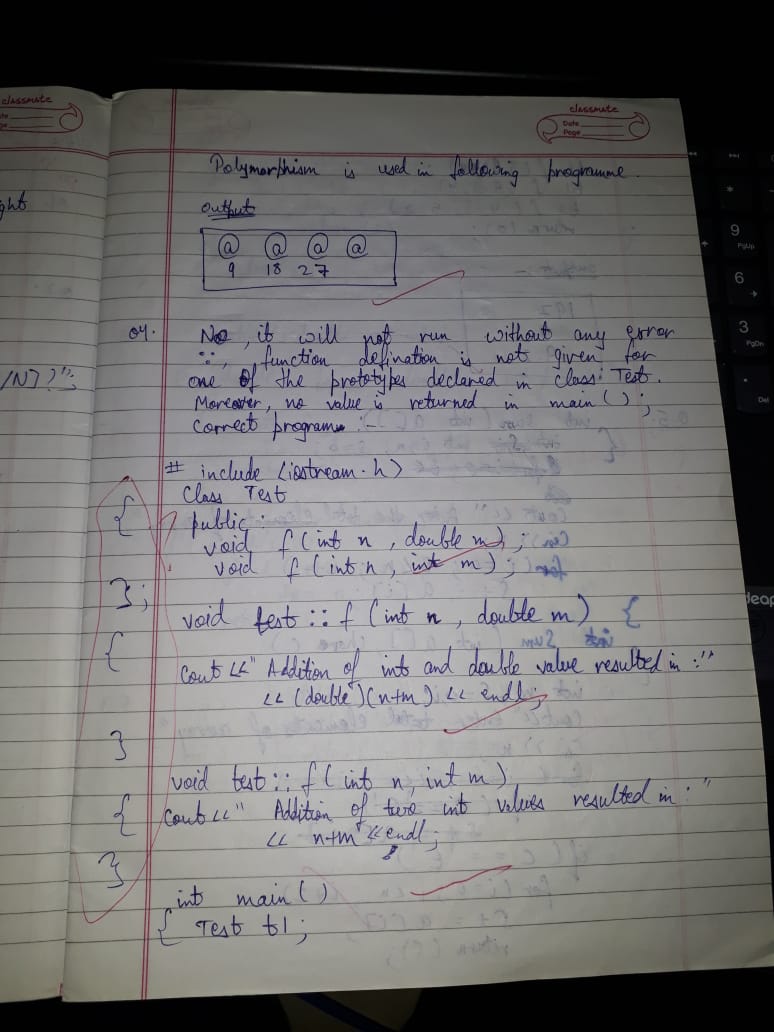 classmate
classmate
Date
Page
Polymorphism is used in following programme.
output
@ @ @ @
9 18 27
04. No, it will not run without any error
∵, function defination is not given for
one of the prototypes declared in class: Test.
Moreover, no value is returned in main();
Correct program :-
# include <iostream.h>
Class Test
{ public :
void f (int n , double m) ;
void f (int n , int m) ;
};
void test :: f (int n , double m)
{
Cout << " Addition of int and double value resulted in :"
<< (double)(n+m) << endl;
}
void test :: f ( int n, int m)
{ Cout << " Addition of two int values resulted in : "
<< n+m << endl;
}
int main ( )
{ Test t1 ;
ght
/N)?";
9
PgUp
6
3
PgDn
Del
deap